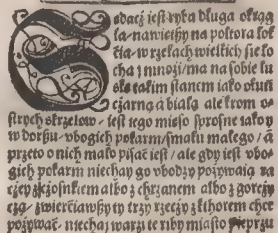 Sadacż iest ryba długa okrąg
ła nawietßy na połtora łok
ćia w rzekach wielkich sie ko
cha j mnoży / ma na sobie łu
ske takim stanem iako okuń
cżarną á białą ale krom o
strych skrzelow / iest iego mięso sprosne iako y
w dorßu vbogich pokarm / smaku małego / á
przeto o nich mało pisać iest / ale gdy iest vbo
gich pokarm niechay go vbodzy pożywaią ra
cżey z cżosnkiem albo z chrzanem albo z gorcży
cą / zwierciawßy ty trzy rzecży z kthorem chce
pożywać. niechaj warzi te riby miasto pieprzu